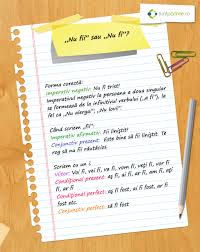 suntparinte.ro
„Nu fii” sau „Nu fi”?
Forma corectă:
Imperativ negativ: Nu fi trist!
Imperativul negativ la persoana a doua singular
se formează de la infinitivul verbului („a fi”), la
fel ca „Nu alerga”, „Nu lovi”.
Când scriem „fii”:
Imperativ afirmativ: Fii liniștit!
Conjunctiv prezent: Este bine să fii liniștit. Te
rog să nu fii răutăcios.
Scriem cu un i
Viitor: Voi fi, vei fi, va fi, vom fi, veți fi, vor fi
Condițional prezent: aș fi, ai fi, ar fi, am fi, ați
fi, ar fi
Condițional perfect: aș fi fost, ai fi fost, ar fi
fost etc.
Conjunctiv perfect: să fi fost